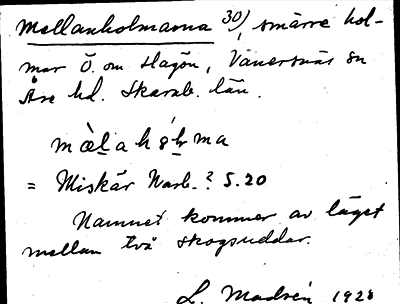 Mellanholmarna 30), smärre hol-
mar Ö. om Slagön, Vänersnäs sn
Åse hd. Skarab. län.
mæ̀lahólma
= Miskär Warb.? S. 20
Namnet kommer av läget
mellan två skogsuddar.
L. Modin 1928